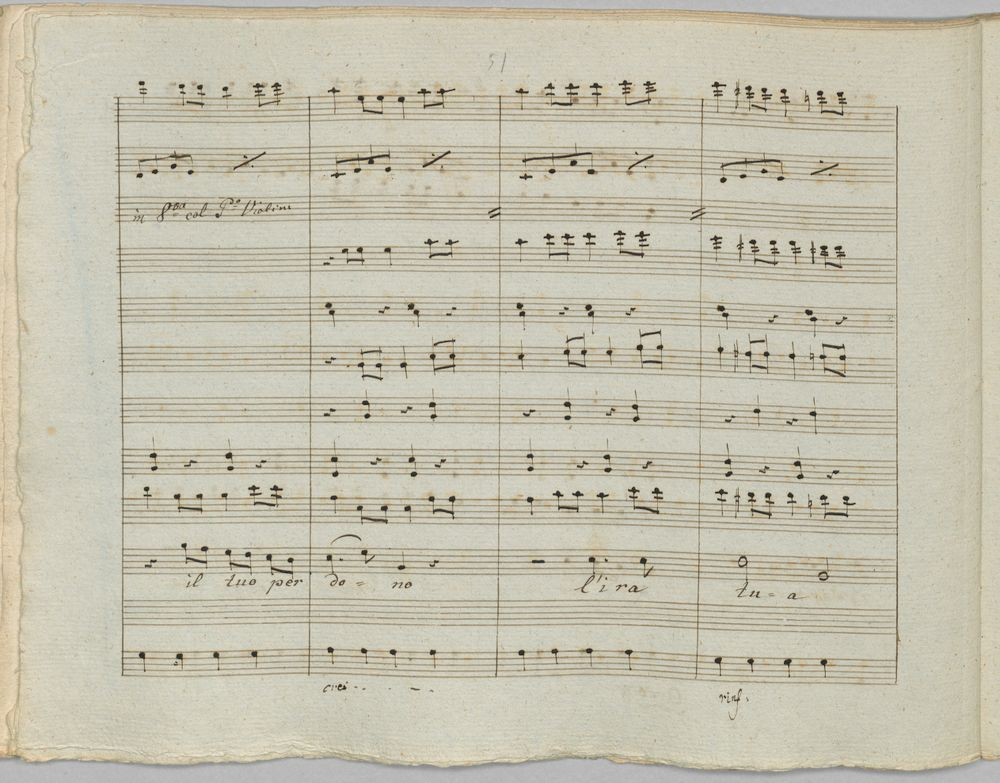 51
in 8va col Pmo Violino
il tuo per do = no l'ira tu = a
rinf.